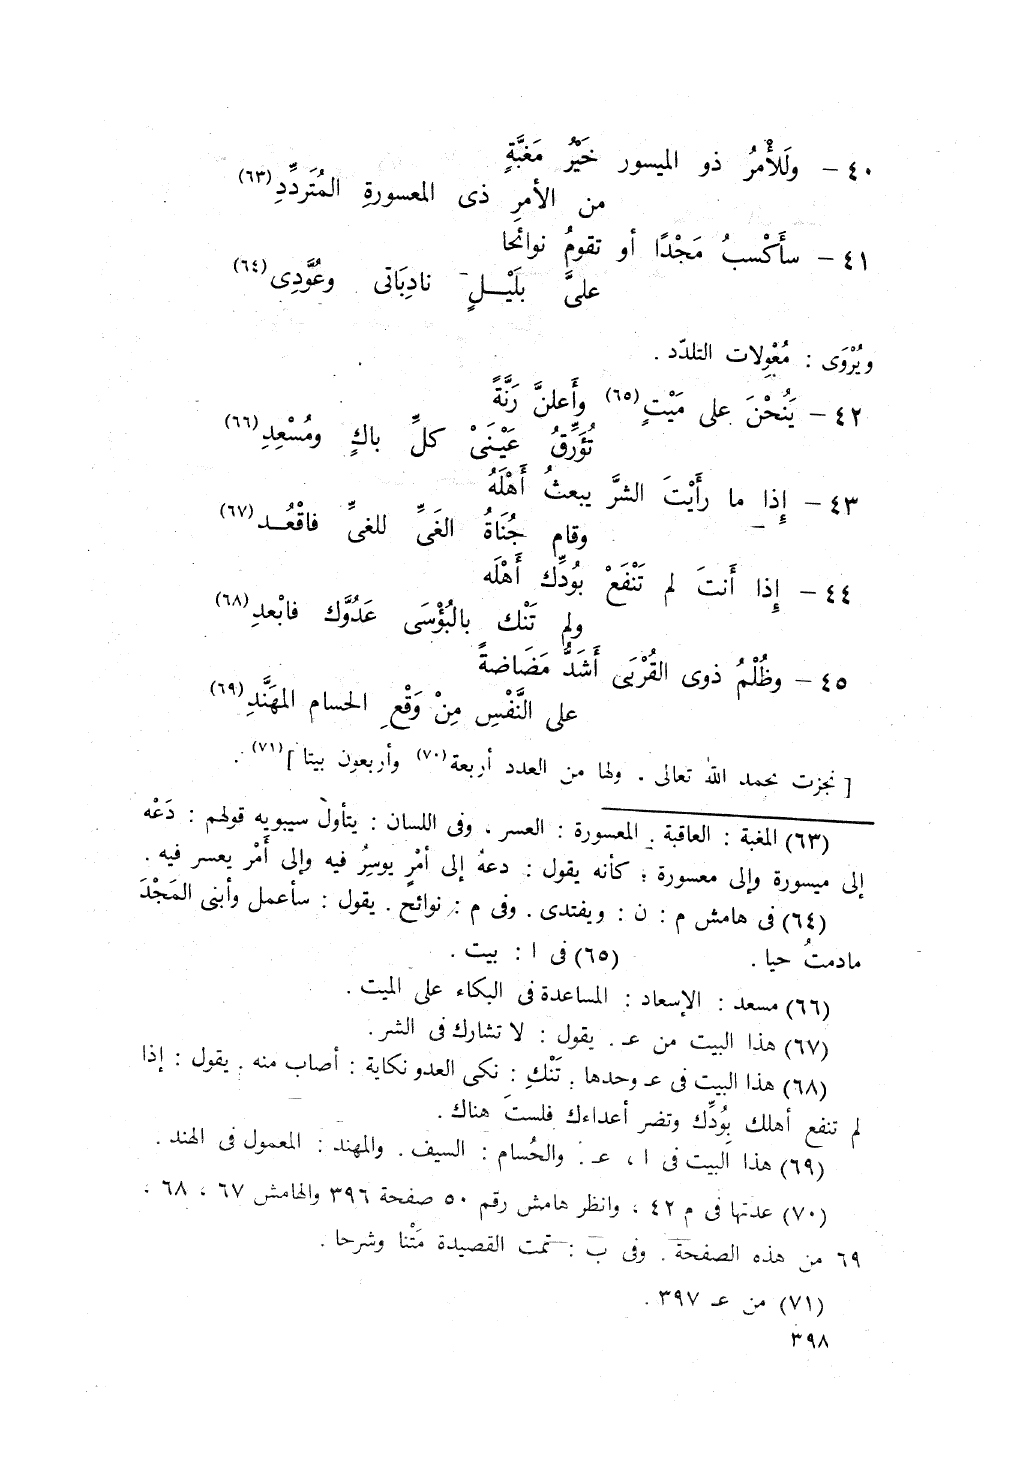 ٤٠ – ولَلأْمرُ ذو الميسور خَيْرُ مَغبَّةٍ
من الأمرِ ذى المعسورةِ المُتَردِّدِ(٦٣)
٤١ – سأَكْسبُ مَجْدًا أو تقومُ نوائحا
علىَّ بلَيْـــلٍ نادِبَاتى وعُوَّدِى(٦٤)
ويُرْوَى : مُعْوِلات التلدّد .
٤٢ – يَنُحْنَ على مَيْتٍ(٦٥) وأَعلنَّ رَنَّةً
تُؤَرِّقُ عَيْنَىْ كلِّ باكٍ ومُسْعِدِ(٦٦)
٤٣ – إِذا ما رأَيْتَ الشرَّ يبعثُ أَهْلَهُ
وقام جُنَاةُ الغَىِّ للغىِّ فاقْعُــد(٦٧)
٤٤ – إِذا أَنتَ لم تَنْفَعْ بوُدِّك أَهْلَه
ولم تَنْك بالبُؤْسَى عَدُوَّك فابْعدِ(٦٨)
٤٥ – وظُلْمُ ذوى القُرْبَى أَشَدُّ مَضَاضةً
على النَّفْسِ مِنْ وَقْعِ الحسام المهَنَّدِ(٦٩)
[ نجزت بحمد الله تعالى . ولها من العدد أربعة(٧٠) وأربعون بيتا ](٧١) .
(٦٣) المغبة : العاقبة . المعسورة : العسر . وفى اللسان : يتأول سيبويه قولهم : دَعْه
إلى ميسورة وإلى معسورة ؛ كأنه يقول : دعهُ إلى أمْرٍ يوسِرُ فيه وإلى أَمْر يعسر فيه .
(٦٤) فى هامش م : ن : ويفتدى . وفى م : نوائح . يقول : سأعمل وأبنى المَجْدَ
مادمتُ حيا . (٦٥) فى ا : بيت .
(٦٦) مسعد : الإسعاد : المساعدة فى البكاء على الميت .
(٦٧) هذا البيت من عـ . يقول : لا تشارك فى الشر .
(٦٨) هذا البيت فى عـ وحدها . تَنْكِ : نكى العدو نكاية : أصاب منه . يقول : إذا
لم تنفع أهلك بِوُدِّك وتضر أعداءك فلستَ هناك .
(٦٩) هذا البيت فى ا ، عـ . والحُسام : السيف . والمهند : المعمول فى الهند .
(٧٠) عدتها فى م ٤٢ ، وانظر هامش رقم ٥٠ صفحة ٣٩٦ والهامش ٦٧ ، ٦٨ ،
٦٩ من هذه الصفحة . وفى ب : تمت القصيدة مَتْنا وشرحا .
(٧١) من عـ ٣٩٧ .
٣٩٨